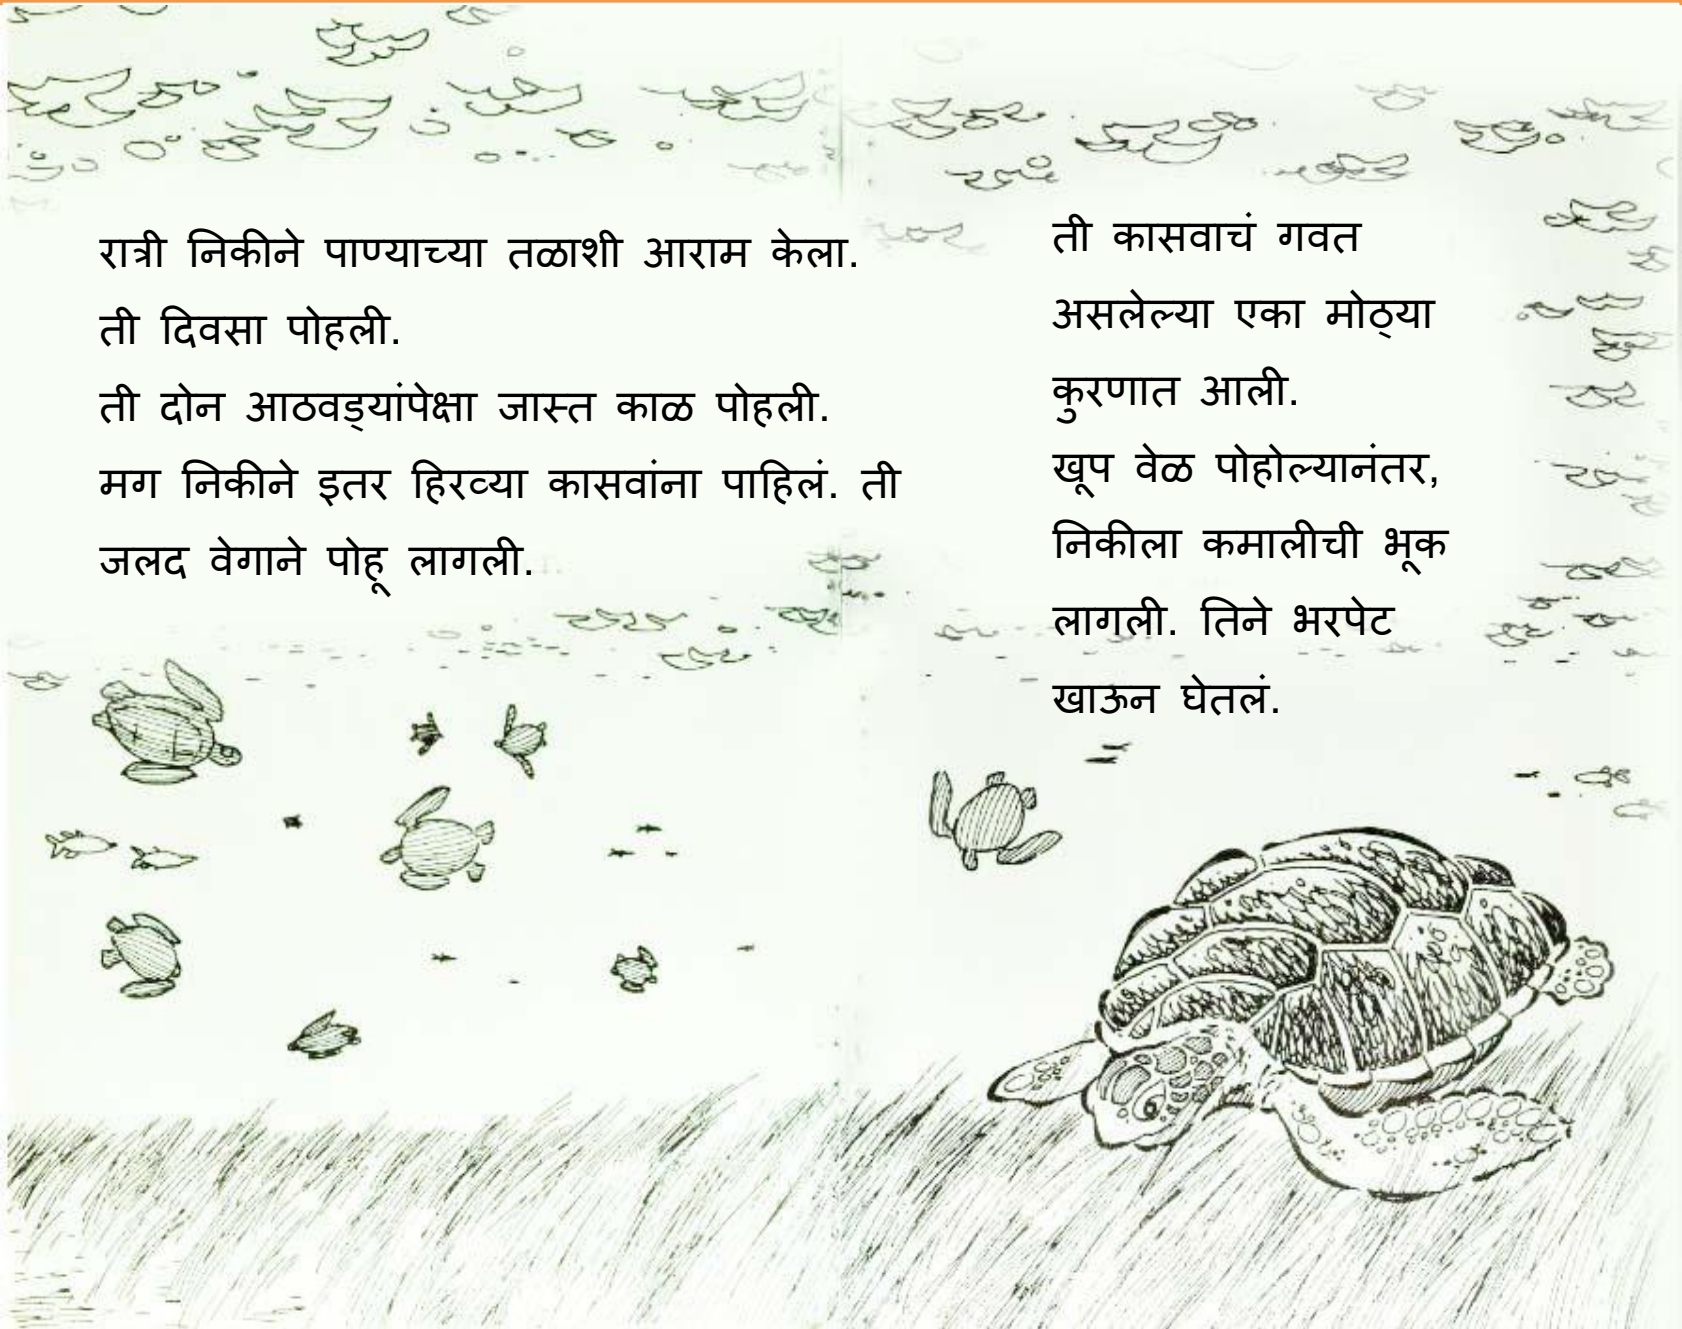 रात्री निकीने पाण्याच्या तळाशी आराम केला.
ती दिवसा पोहली.
ती दोन आठवड्यांपेक्षा जास्त काळ पोहली.
मग निकीने इतर हिरव्या कासवांना पाहिलं. ती
जलद वेगाने पोहू लागली.
ती कासवाचं गवत
असलेल्या एका मोठ्या
कुरणात आली.
खूप वेळ पोहोल्यानंतर,
निकीला कमालीची भूक
लागली. तिने भरपेट
खाऊन घेतलं.